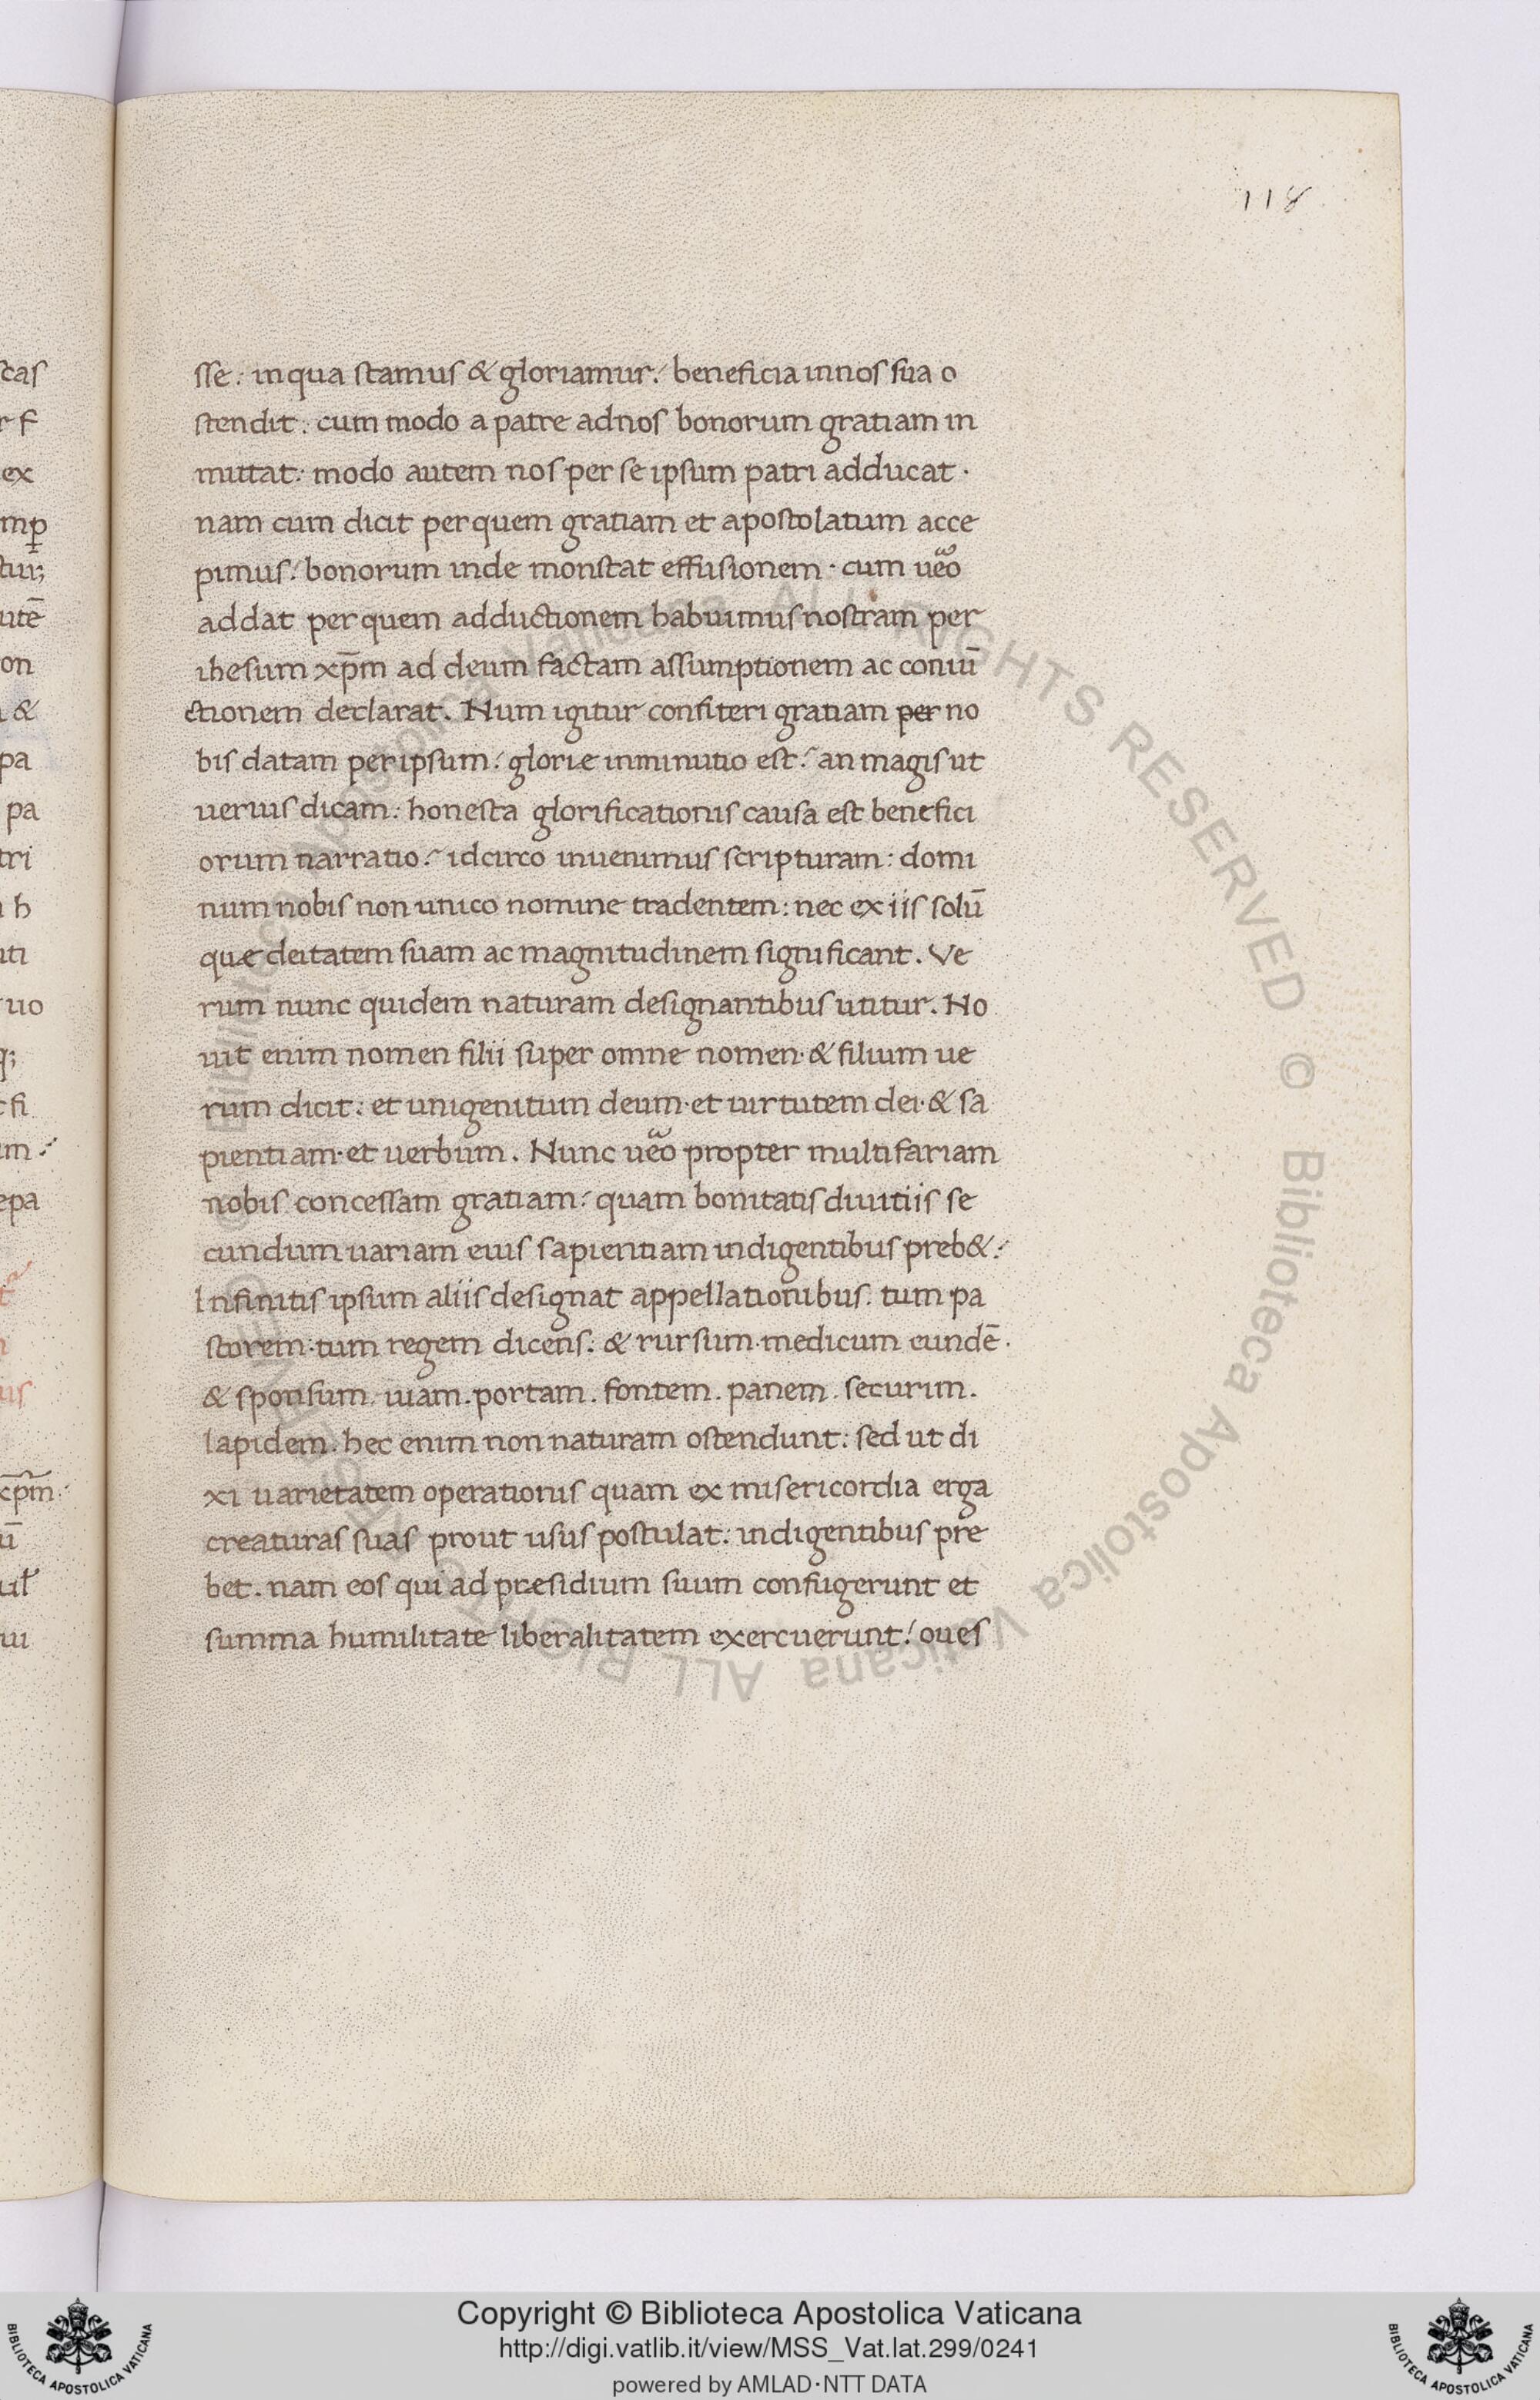 118
sse: in qua stamus & gloriamur: beneficia in nos sua o
stendit: cum modo a patre ad nos bonorum gratiam in
mittat: modo autem nos per se ipsum patri adducat.
nam cum dicit per quem gratiam et apostolatum acce
pimus: bonorum inde monstat effusionem. cum ūeo
addat per quem adductionem habuimus nostram per
ihesum xp̄m ad deum factam assumptionem ac coniū
ctionem declarat. Num igitur confiteri gratiam per no
bis datam per ipsum: glorie inminutio est: an magis ut
uerius dicam: honesta glorificationis causa est benefici
orum narratio: idcirco inuenimus scripturam: domi
num nobis non unico nomine tradentem: nec ex iis solū
quæ deitatem suam ac magnitudinem significant. Ve
rum nunc quidem naturam designantibus utitur. No
uit enim nomen filii super omne nomen. & filium ue
rum dicit: et unigenitum deum. et uirtutem dei. & sa
pientiam. et uerbum. Nunc ūeo propter multifariam
nobis concessam gratiam: quam bonitatis diuitiis se
cundum uariam eius sapientiam indigentibus preb&:
Infinitis ipsum aliis designat appellationibus. tum pa
storem: tum regem dicens: & rursum. medicum eundē.
& sponsum. uiam. portam. fontem. panem. securim.
lapidem. hec enim non naturam ostendunt: sed ut di
xi uarietatem operationis quam ex misericordia erga
creaturas suas prout usus postulat: indigentibus pre
bet. nam eos qui ad presidium suum confugerunt et
summa humilitate liberalitatem exercuerunt: oues
Copyright © Biblioteca Apostolica Vaticana
http://digi.vatlib.it/view/MSS_Vat.lat.299/0241
powered by AMLAD·NTT DATA